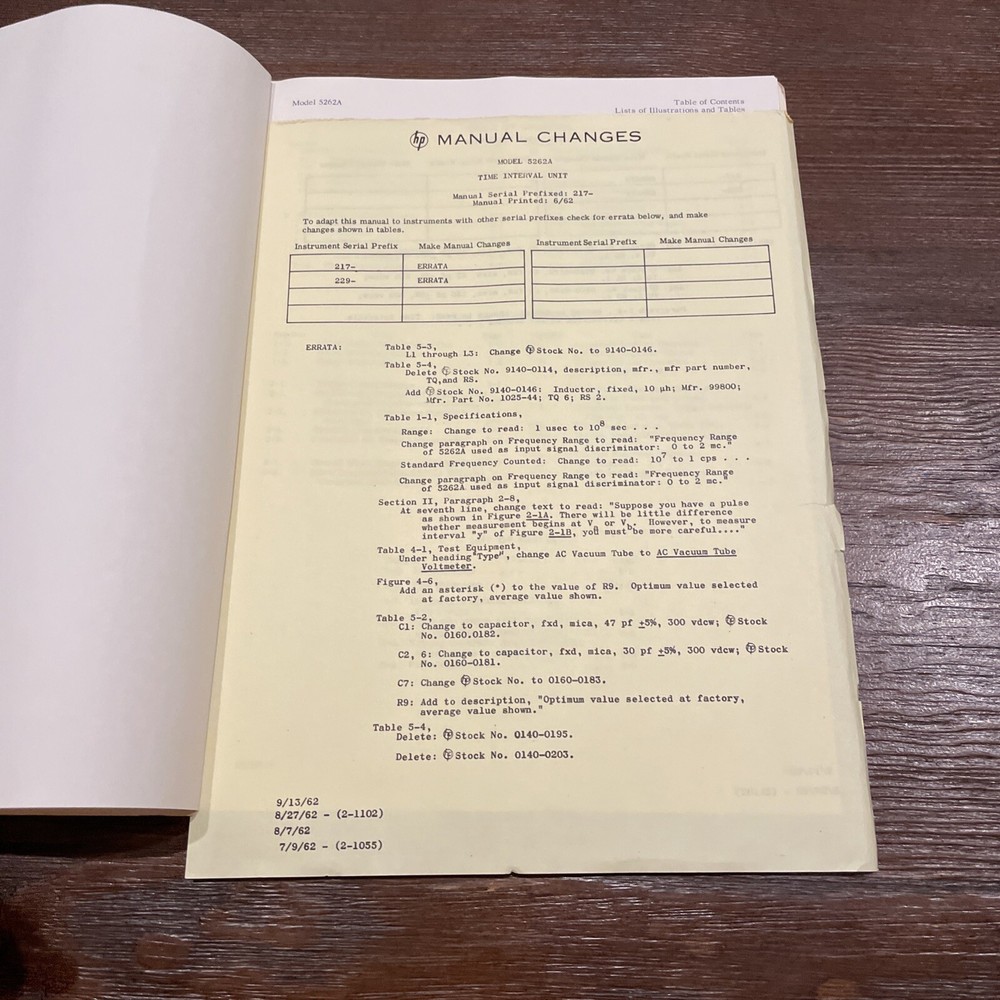 Model 5262A
Table of Contents
Lists of Illustrations and Tables
hp MANUAL CHANGES
MODEL 5262A
TIME INTERVAL UNIT
Manual Serial Prefixed: 217-
Manual Printed: 6/62
To adapt this manual to instruments with other serial prefixes check for errata below, and make
changes shown in tables.
Instrument Serial Prefix Make Manual Changes Instrument Serial Prefix Make Manual Changes
217- ERRATA
229- ERRATA
ERRATA: Table 5-3,
L1 through L3: Change hp Stock No. to 9140-0146.
Table 5-4,
Delete hp Stock No. 9140-0114, description, mfr., mfr part number,
TQ,and RS.
Add hp Stock No. 9140-0146: Inductor, fixed, 10 µh; Mfr. 99800;
Mfr. Part No. 1025-44; TQ 6; RS 2.
Table 1-1, Specifications,
Range: Change to read: 1 usec to 10⁸ sec . . .
Change paragraph on Frequency Range to read: "Frequency Range
of 5262A used as input signal discriminator: 0 to 2 mc."
Standard Frequency Counted: Change to read: 10⁷ to 1 cps . . .
Change paragraph on Frequency Range to read: "Frequency Range
of 5262A used as input signal discriminator: 0 to 2 mc."
Section II, Paragraph 2-8,
At seventh line, change text to read: "Suppose you have a pulse
as shown in Figure 2-1A. There will be little difference
whether measurement begins at Va or Vb. However, to measure
interval "y" of Figure 2-1B, you must be more careful...."
Table 4-1, Test Equipment,
Under heading "Type", change AC Vacuum Tube to AC Vacuum Tube
Voltmeter.
Figure 4-6,
Add an asterisk (*) to the value of R9. Optimum value selected
at factory, average value shown.
Table 5-2,
C1: Change to capacitor, fxd, mica, 47 pf ±5%, 300 vdcw; hp Stock
No. 0160.0182.
C2, 6: Change to capacitor, fxd, mica, 30 pf ±5%, 300 vdcw; hp Stock
No. 0160-0181.
C7: Change hp Stock No. to 0160-0183.
R9: Add to description, "Optimum value selected at factory,
average value shown."
Table 5-4,
Delete: hp Stock No. 0140-0195.
Delete: hp Stock No. 0140-0203.
9/13/62
8/27/62 - (2-1102)
8/7/62
7/9/62 - (2-1055)